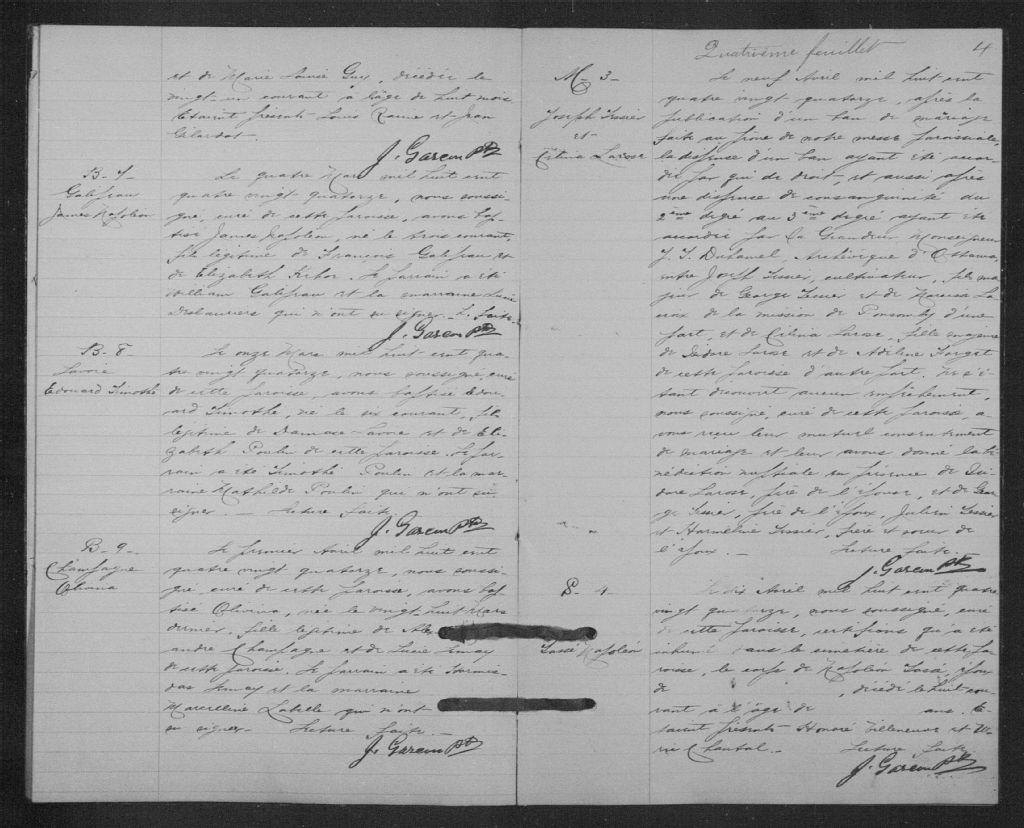 et de Marie Louise Guy, décédée le
vingt-un courant à l'âge de huit mois
Etaient présents Louis Racine et Jean
J. Gareau Ptre
B-7-
Galipeau
James Napoléon
Le quatre Mars mil huit cent
quatre vingt quatorze, nous soussi-
gné, curé de cette paroisse, avons bap-
tisé James Napoléon, né le trois courant,
fils légitime de François Galipeau et
de Elizabeth. Le parrain a été
William Galipeau et la marraine
Deslauriers qui n'ont su signer. L. faite.
J. Gareau Ptre
B-8-
Lavoie
Edouard Timothé
Le onze Mars mil huit cent qua-
tre vingt quatorze, nous soussigné, curé
de cette paroisse, avons baptisé Edou-
ard Timothé, né le six courant, fils
légitime de Damase Lavoie et de Eli-
zabeth Poulin de cette paroisse. Le par-
rain a été Timothé Poulin et la mar-
raine Mathilde Poulin qui n'ont su
signer. — Lecture faite.
J. Gareau Ptre
B-9-
Champagne
Olivina
Le premier Avril mil huit cent
quatre vingt quatorze, nous soussi-
gné, curé de cette paroisse, avons bap-
tisé Olivina, née le vingt huit Mars
dernier, fille légitime de Alex-
andre Champagne et de Lucie
de cette paroisse. Le parrain a été Hormis-
das et la marraine
Marcelline Labelle qui n'ont
su signer. Lecture faite. —
J. Gareau Ptre
Quatrième feuillet 4
M-3-
Joseph Tessier
et
Célina Larose
Le neuf Avril mil huit cent
quatre vingt quatorze, après la
publication d'un ban de mariage
faite au prone de notre messe paroissiale,
la dispense d'un ban ayant été accor-
dée par qui de droit, et aussi après
une dispense de consanguinité du
2ème degré au 3ème degré ayant été
accordée par Sa Grandeur Monseigneur
J. T. Duhamel, Archevêque d'Ottawa,
entre Joseph Tessier, cultivateur, fils ma-
jeur de George Tessier et de Narcisse La-
de la mission de Ponsonby d'une
part, et de Célina Larose, fille majeure
de Isidore Larose et de Adeline Forget
de cette paroisse d'autre part. Ne s'é-
tant découvert aucun empêchement,
nous soussigné, curé de cette paroisse, a-
vons reçu leur mutuel consentement
de mariage et leur avons donné la bé-
nédiction nuptiale en présence de Isi-
dore Larose, père de l'épouse, et de Geor-
ge Tessier, père de l'époux, Julien Tessier
et Herméline Tessier, frère et soeur de
l'époux. — Lecture faite.
J. Gareau Ptre
S-4.
Sasé Napoléon
Le dix Avril mil huit cent quatre
vingt quatorze, nous soussigné, curé
de cette paroisse, certifions qu'a été
inhumé dans le cimetière de cette pa-
roisse, le corps de Napoléon Sasé, époux
de , décédé le huit cou-
rant à l'âge de ans. E-
taient présents Honoré Villeneuve et
Chantal. — Lecture faite.
J. Gareau Ptre